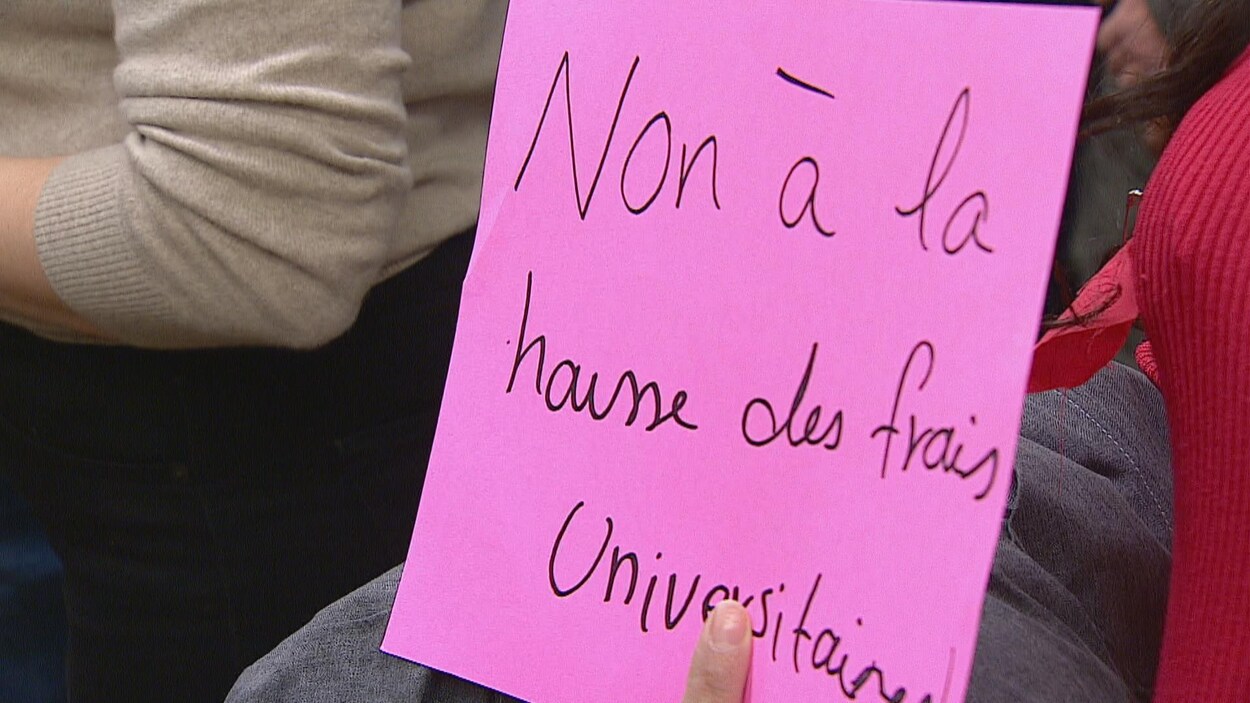 Non à la
hausse des frais
Universitaires